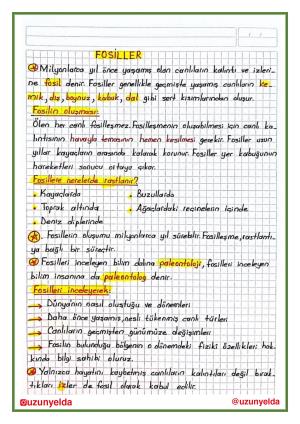 FOSİLLER
Milyonlarca yıl önce yaşamış olan canlıların kalıntı ve izleri-
ne fosil denir. Fosiller genellikle geçmişte yaşamış canlıların ke-
mik, diş, boynuz, kabuk, dal gibi sert kısımlarından oluşur.
Fosilin oluşması:
Ölen her canlı fosilleşmez. Fosilleşmenin oluşabilmesi için canlı ka-
lıntısının havayla temasının hemen kesilmesi gerekir. Fosiller uzun
yıllar kayaçların arasında kalarak korunur. Fosiller yer kabuğunun
hareketleri sonucu ortaya çıkar.
Fosillere nerelerde rastlanır?
• Kayaçlarda • Buzullarda
• Toprak altında • Ağaçlardaki reçinelerin içinde
• Deniz diplerinde
Fosillerin oluşumu milyonlarca yıl sürebilir. Fosilleşme, rastlantı-
ya bağlı bir süreçtir.
Fosilleri inceleyen bilim dalına paleontoloji, fosilleri inceleyen
bilim insanına da paleontolog denir.
Fosilleri inceleyerek:
→ Dünya'nın nasıl oluştuğu ve dönemleri
→ Daha önce yaşamış, nesli tükenmiş canlı türleri
→ Canlıların geçmişten günümüze değişimleri
→ Fosilin bulunduğu bölgenin o dönemdeki fiziki özellikleri hak-
kında bilgi sahibi oluruz.
Yalnızca hayatını kaybetmiş canlıların kalıntıları değil bırak-
tıkları izler de fosil olarak kabul edilir.
@uzunyelda @uzunyelda